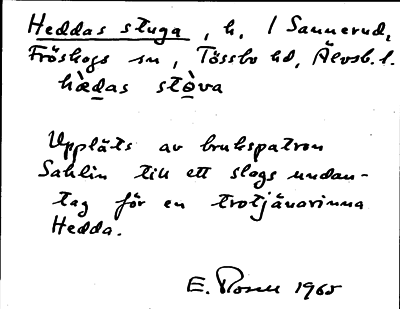 Heddas stuga, h. / Sannerud,
Fröskogs sn, Tössbo hd, Älvsb. l.
hæ̀das stò̱va
Uppläts av brukspatron
Sahlin till ett slags undan-
tag för en trotjänarinna
Hedda.
E. Rosell 1965